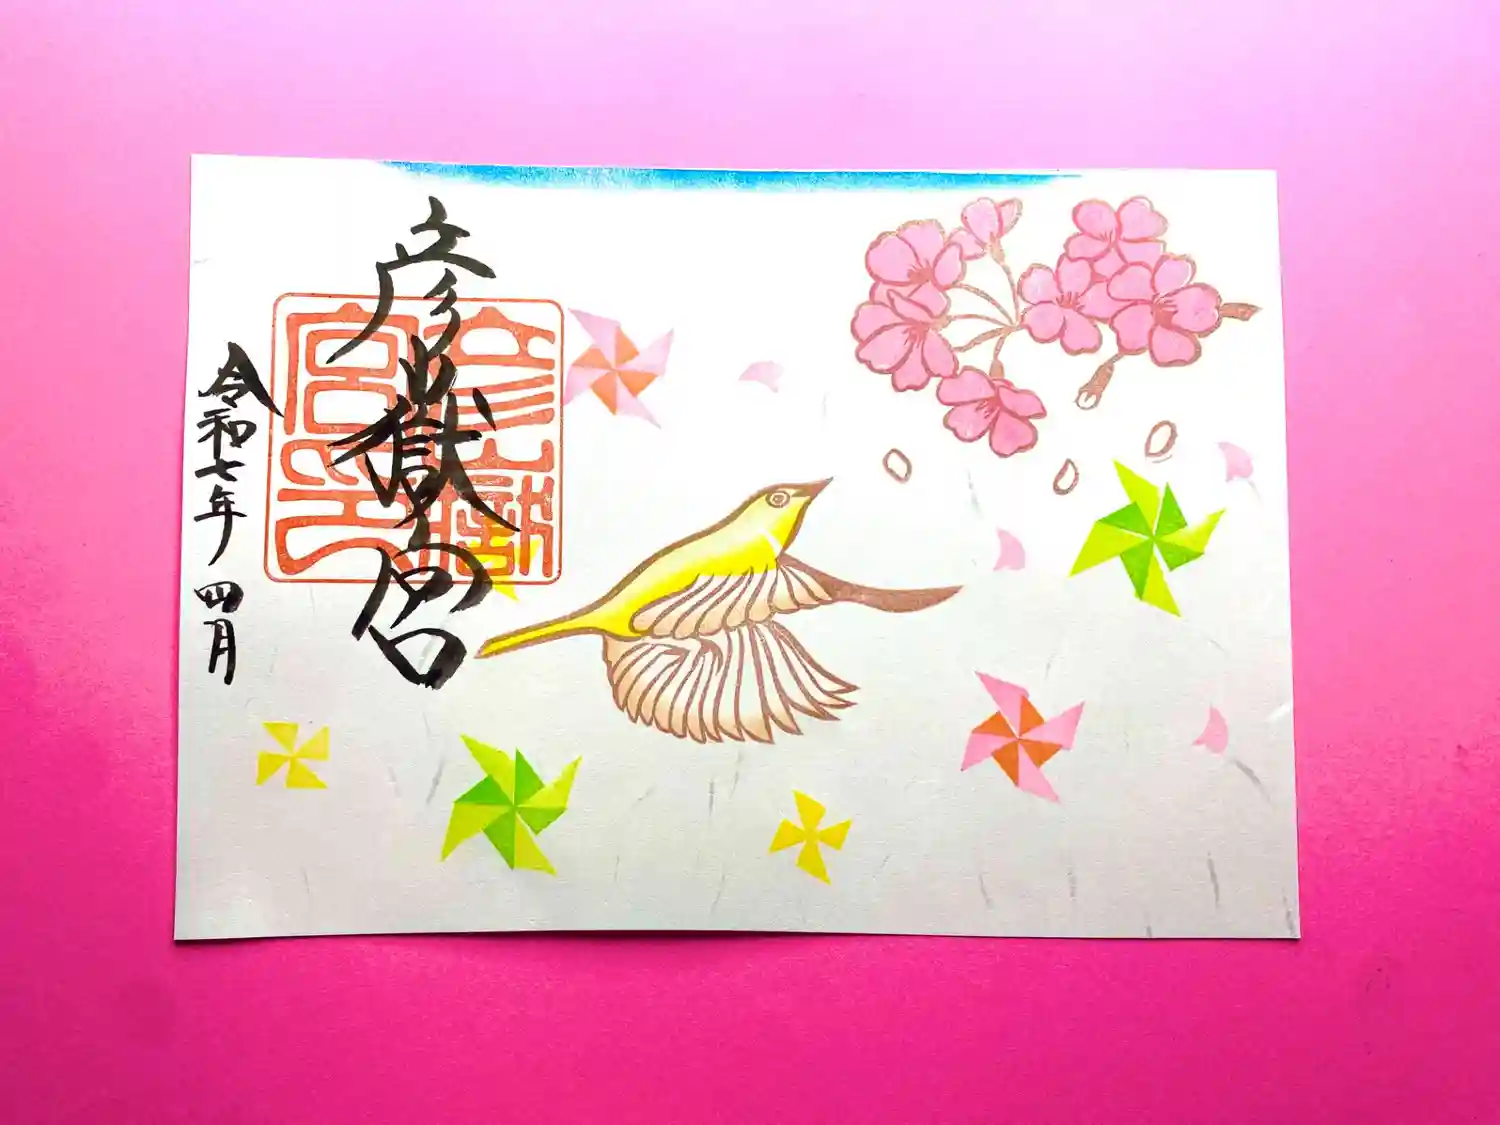 彦嶽宮
彦嶽
宮印
令和七年 四月